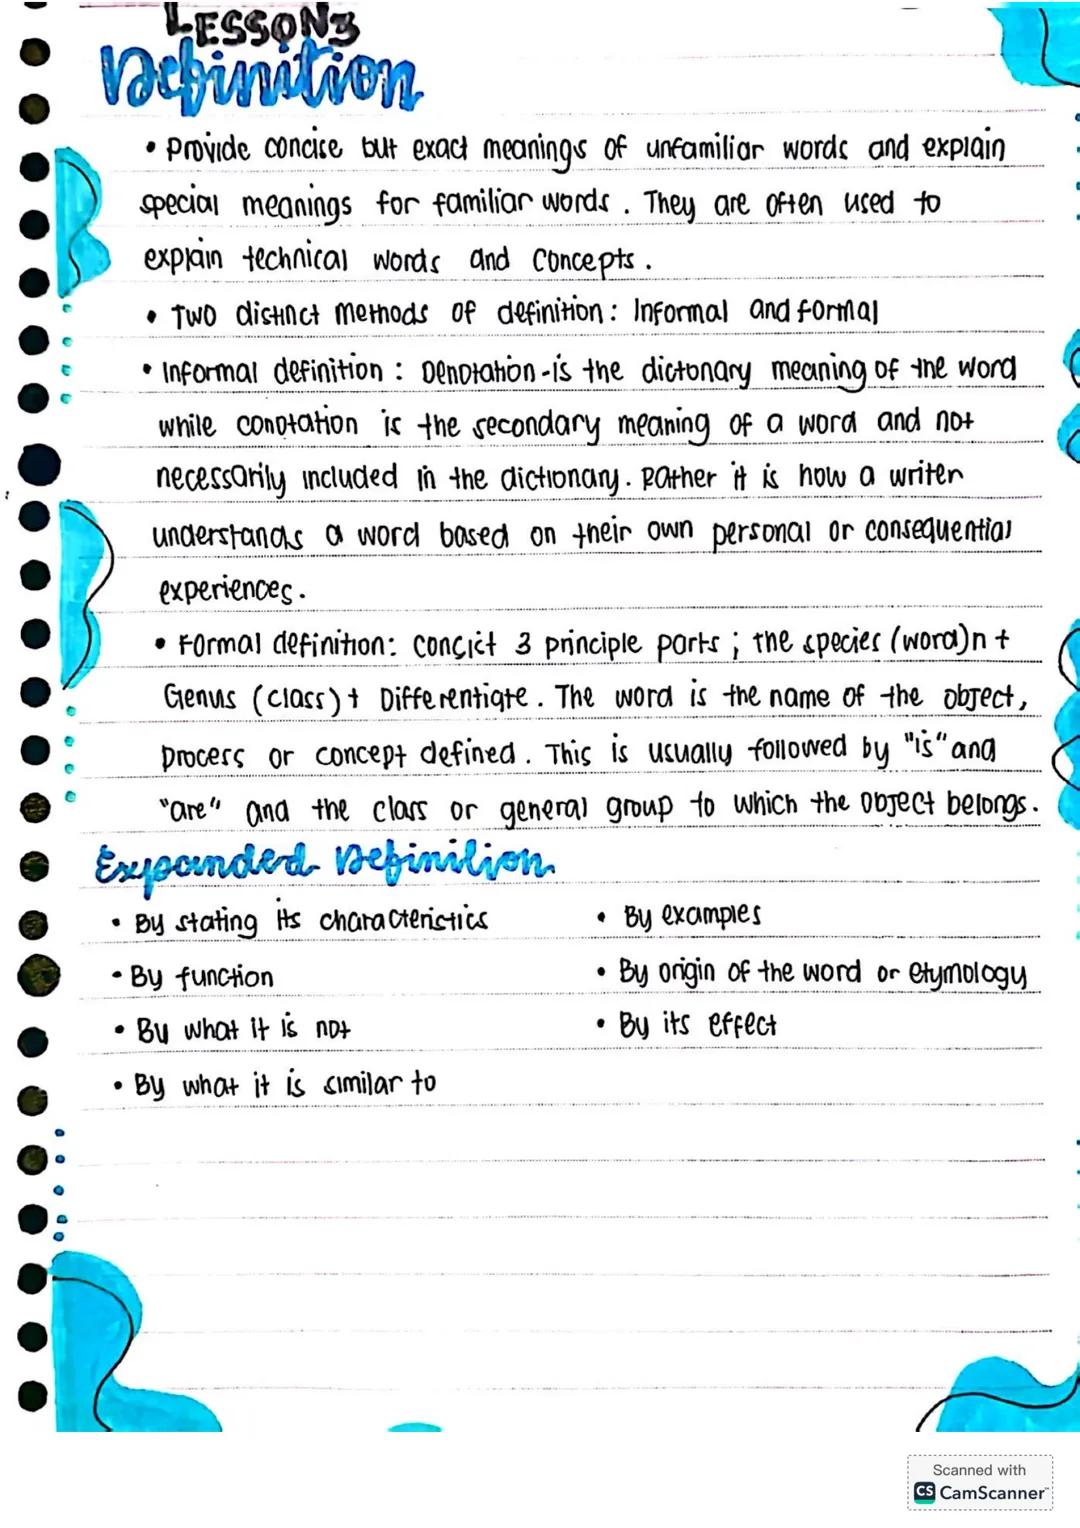 LESSON 3
Definition
• Provide concise but exact meanings of unfamiliar words and explain
special meanings for familiar words. They are often used to
explain technical words and concepts.
• Two distinct methods of definition: Informal and formal
• Informal definition: Denotation - is the dictonary meaning of the word
while conotation is the secondary meaning of a word and not
necessarily included in the dictionary. Rather it is how a writer
understands a word based on their own personal or consequential
experiences.
• Formal definition: concict 3 principle parts; the species (word)n +
Genus (class) + Differentiate. The word is the name of the object,
process or concept defined. This is usually followed by "is" and
"are" and the class or general group to which the object belongs.
Expanded Definition
• By stating its characteristics
• By function
• By what it is not
• By what it is similar to
• By examples
• By origin of the word or etymology
• By its effect
Scanned with
CS CamScanner